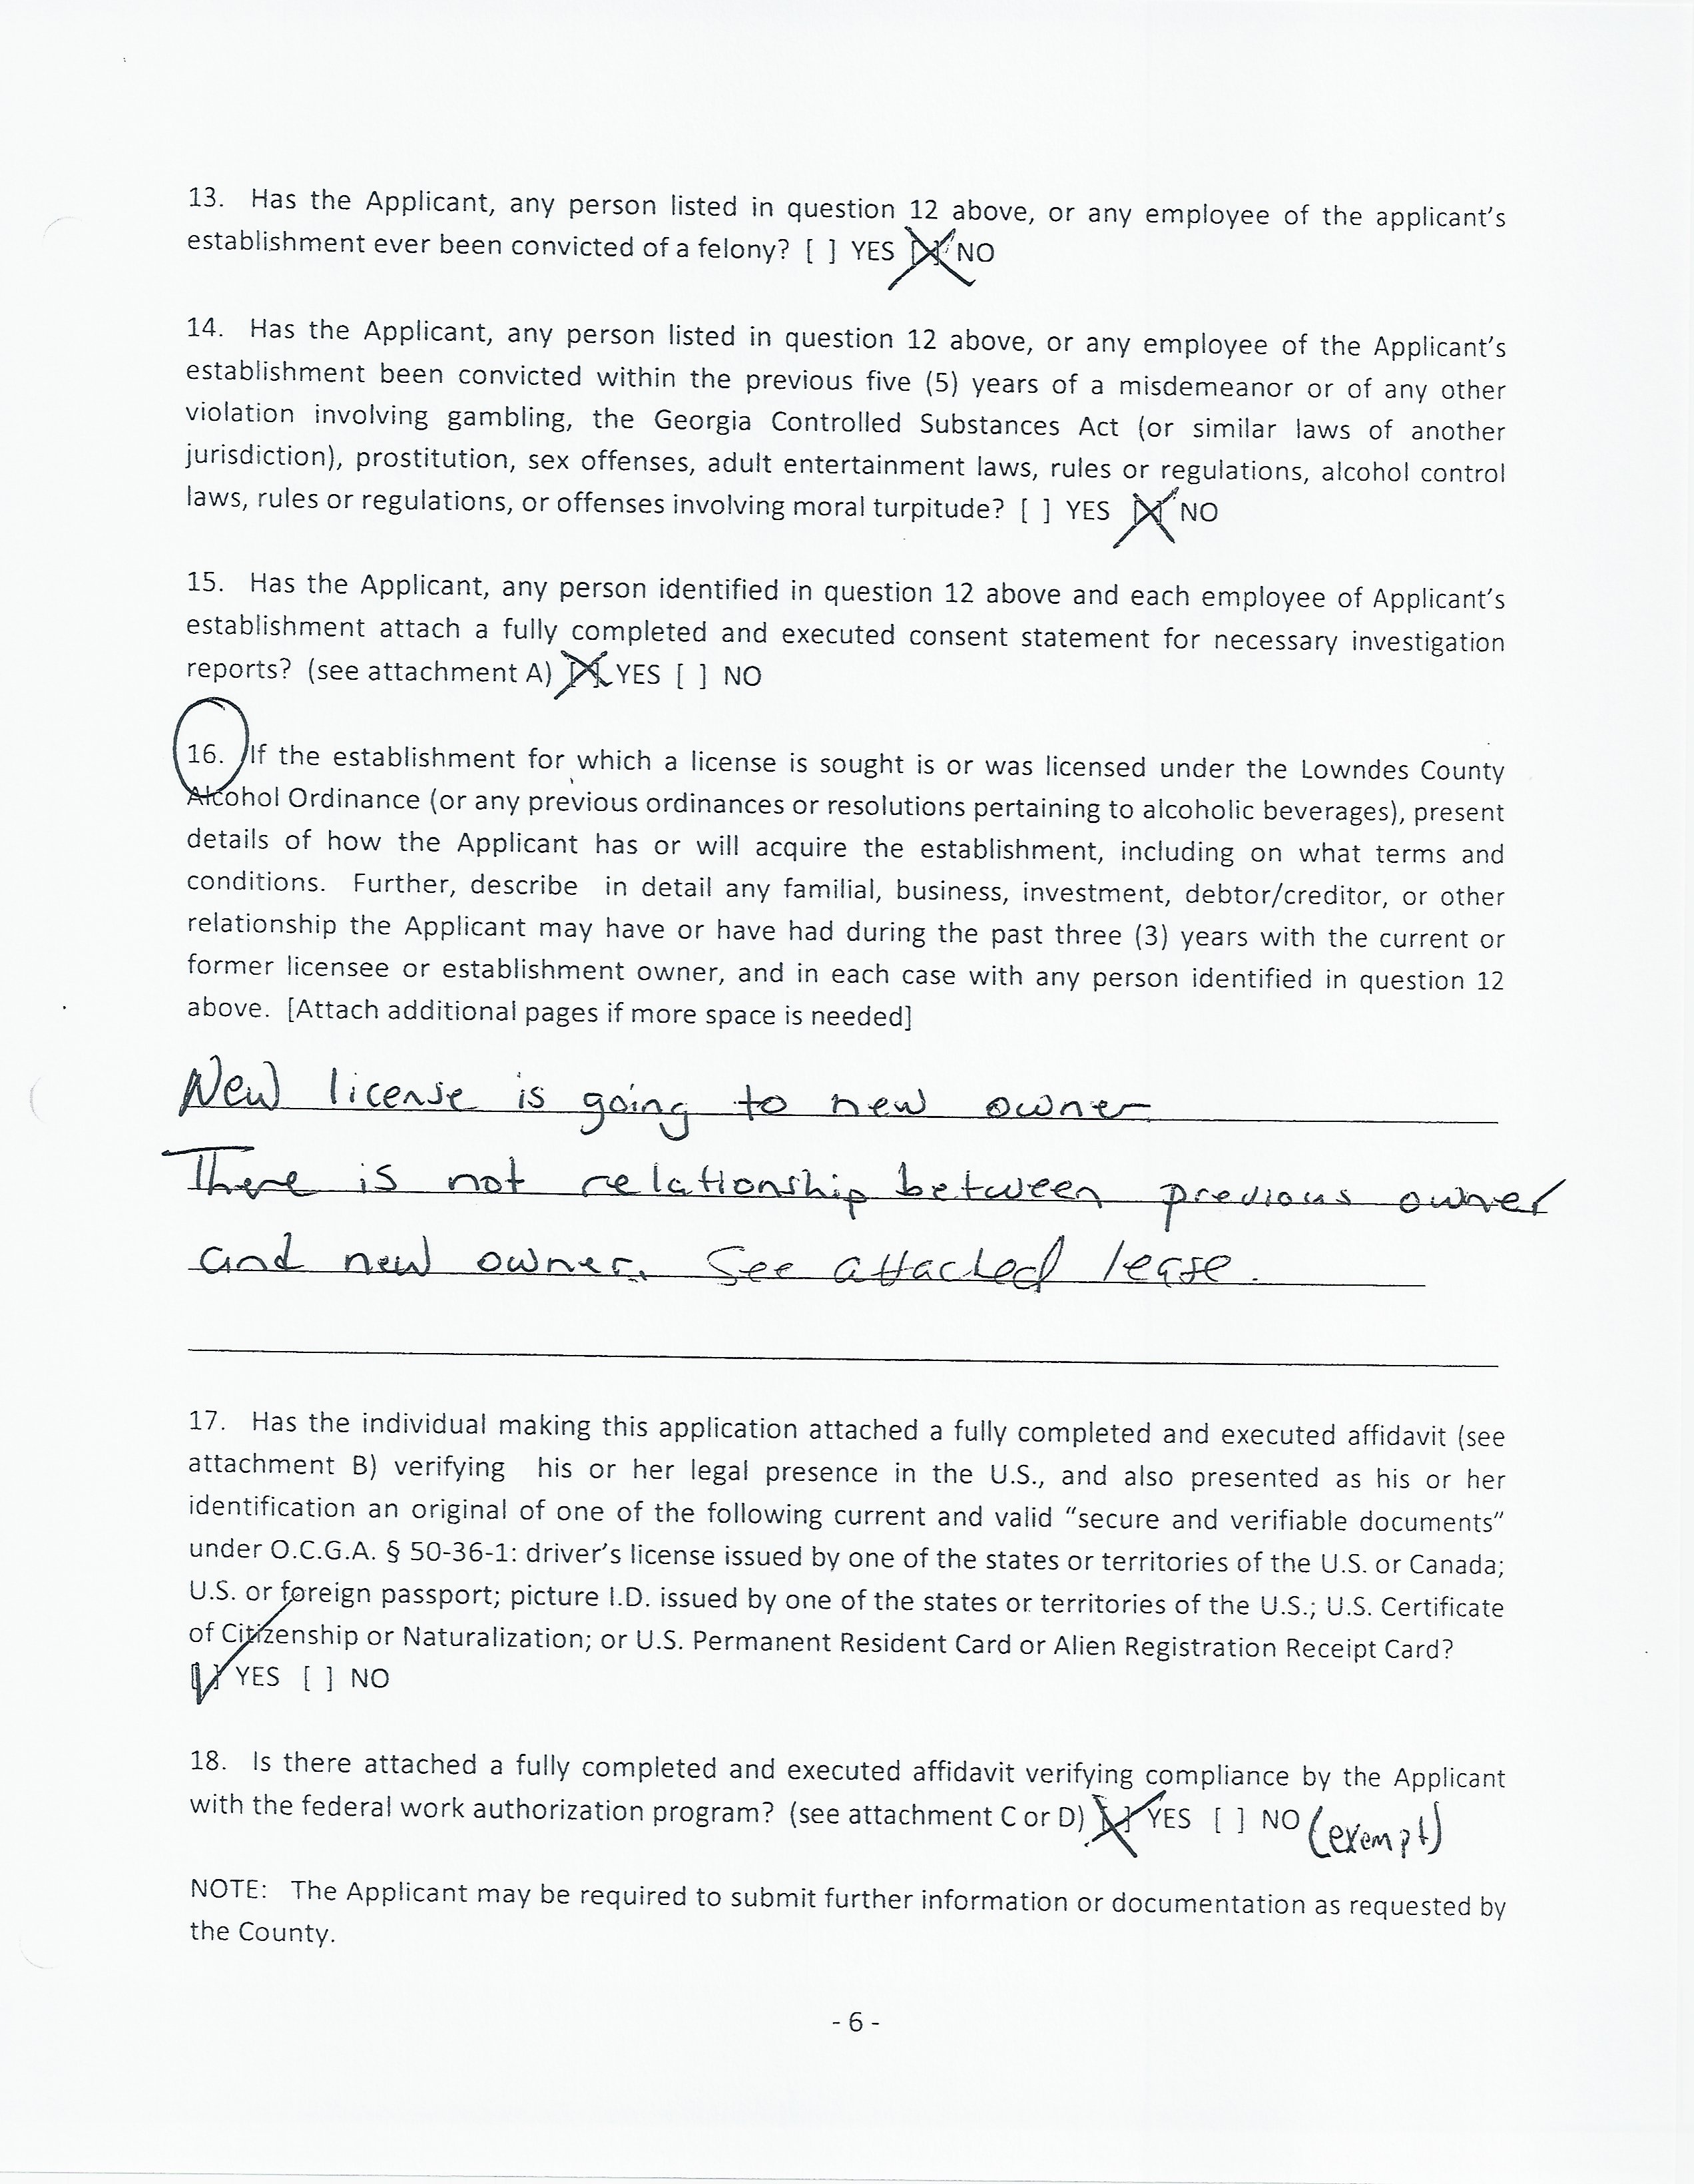 13. Has the Applicant, any person listed in question 12 above, or any employee of the applicant's
establishment ever been convicted of a felony? [ ] YES [X] NO
14. Has the Applicant, any person listed in question 12 above, or any employee of the Applicant's
establishment been convicted within the previous five (5) years of a misdemeanor or of any other
violation involving gambling, the Georgia Controlled Substances Act (or similar laws of another
jurisdiction), prostitution, sex offenses, adult entertainment laws, rules or regulations, alcohol control
laws, rules or regulations, or offenses involving moral turpitude? [ ] YES [X] NO
15. Has the Applicant, any person identified in question 12 above and each employee of Applicant's
establishment attach a fully completed and executed consent statement for necessary investigation
reports? (see attachment A) [X] YES [ ] NO
16. If the establishment for which a license is sought is or was licensed under the Lowndes County
Alcohol Ordinance (or any previous ordinances or resolutions pertaining to alcoholic beverages), present
details of how the Applicant has or will acquire the establishment, including on what terms and
conditions. Further, describe in detail any familial, business, investment, debtor/creditor, or other
relationship the Applicant may have or have had during the past three (3) years with the current or
former licensee or establishment owner, and in each case with any person identified in question 12
above. [Attach additional pages if more space is needed]
New license is going to new owner
There is not relationship between previous owner
and new owner. See attached lease.
17. Has the individual making this application attached a fully completed and executed affidavit (see
attachment B) verifying his or her legal presence in the U.S., and also presented as his or her
identification an original of one of the following current and valid “secure and verifiable documents”
under O.C.G.A. § 50-36-1: driver's license issued by one of the states or territories of the U.S. or Canada;
U.S. or foreign passport; picture I.D. issued by one of the states or territories of the U.S.; U.S. Certificate
of Citizenship or Naturalization; or U.S. Permanent Resident Card or Alien Registration Receipt Card?
[✓] YES [ ] NO
18. Is there attached a fully completed and executed affidavit verifying compliance by the Applicant
with the federal work authorization program? (see attachment C or D) [X] YES [ ] NO (exempt)
NOTE: The Applicant may be required to submit further information or documentation as requested by
the County.
- 6 -